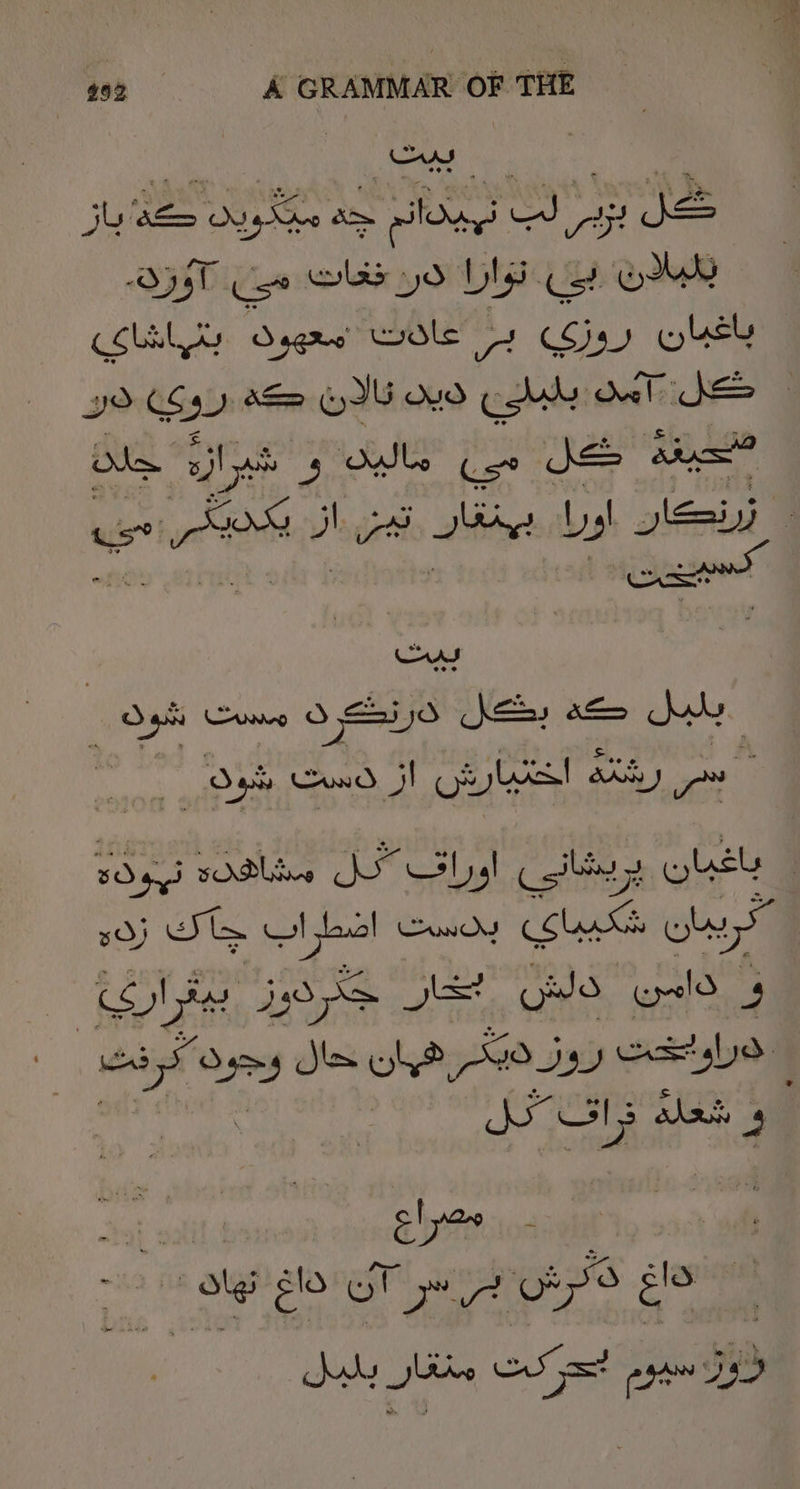 192 A GRAMMAR OF THE
بيت
گل بزير لب نميدانم چه ميگويد كه باز
بلبلان بي نوارا در فغات مي آورد
باغبان روزي بر عادت معهود بتماشاي
گل آمد بلبلي ديد نالان كه روي در
صحيفهٔ گل مي ماليد و شيرازهٔ جلد
زرنگار اورا بمنقار تيز از يكديگر مي
گسيخت
بيت
بلبل كه بگل درنگرد مست شود
سر رشتهٔ اختيارش از دست شود
باغبان پريشاني اوراق گل مشاهده نموده
گريبان شكيباي بدست اضطراب چاك زده
و دامن دلش بخار جگردوز بيقراري
دراويخت روز ديگر همان حال وجود گرفت
و شعلهٔ فراق گل
مصراع
داغ دگرش بر سر آن داغ نهاد
روز سيوم بحركت منقار بلبل